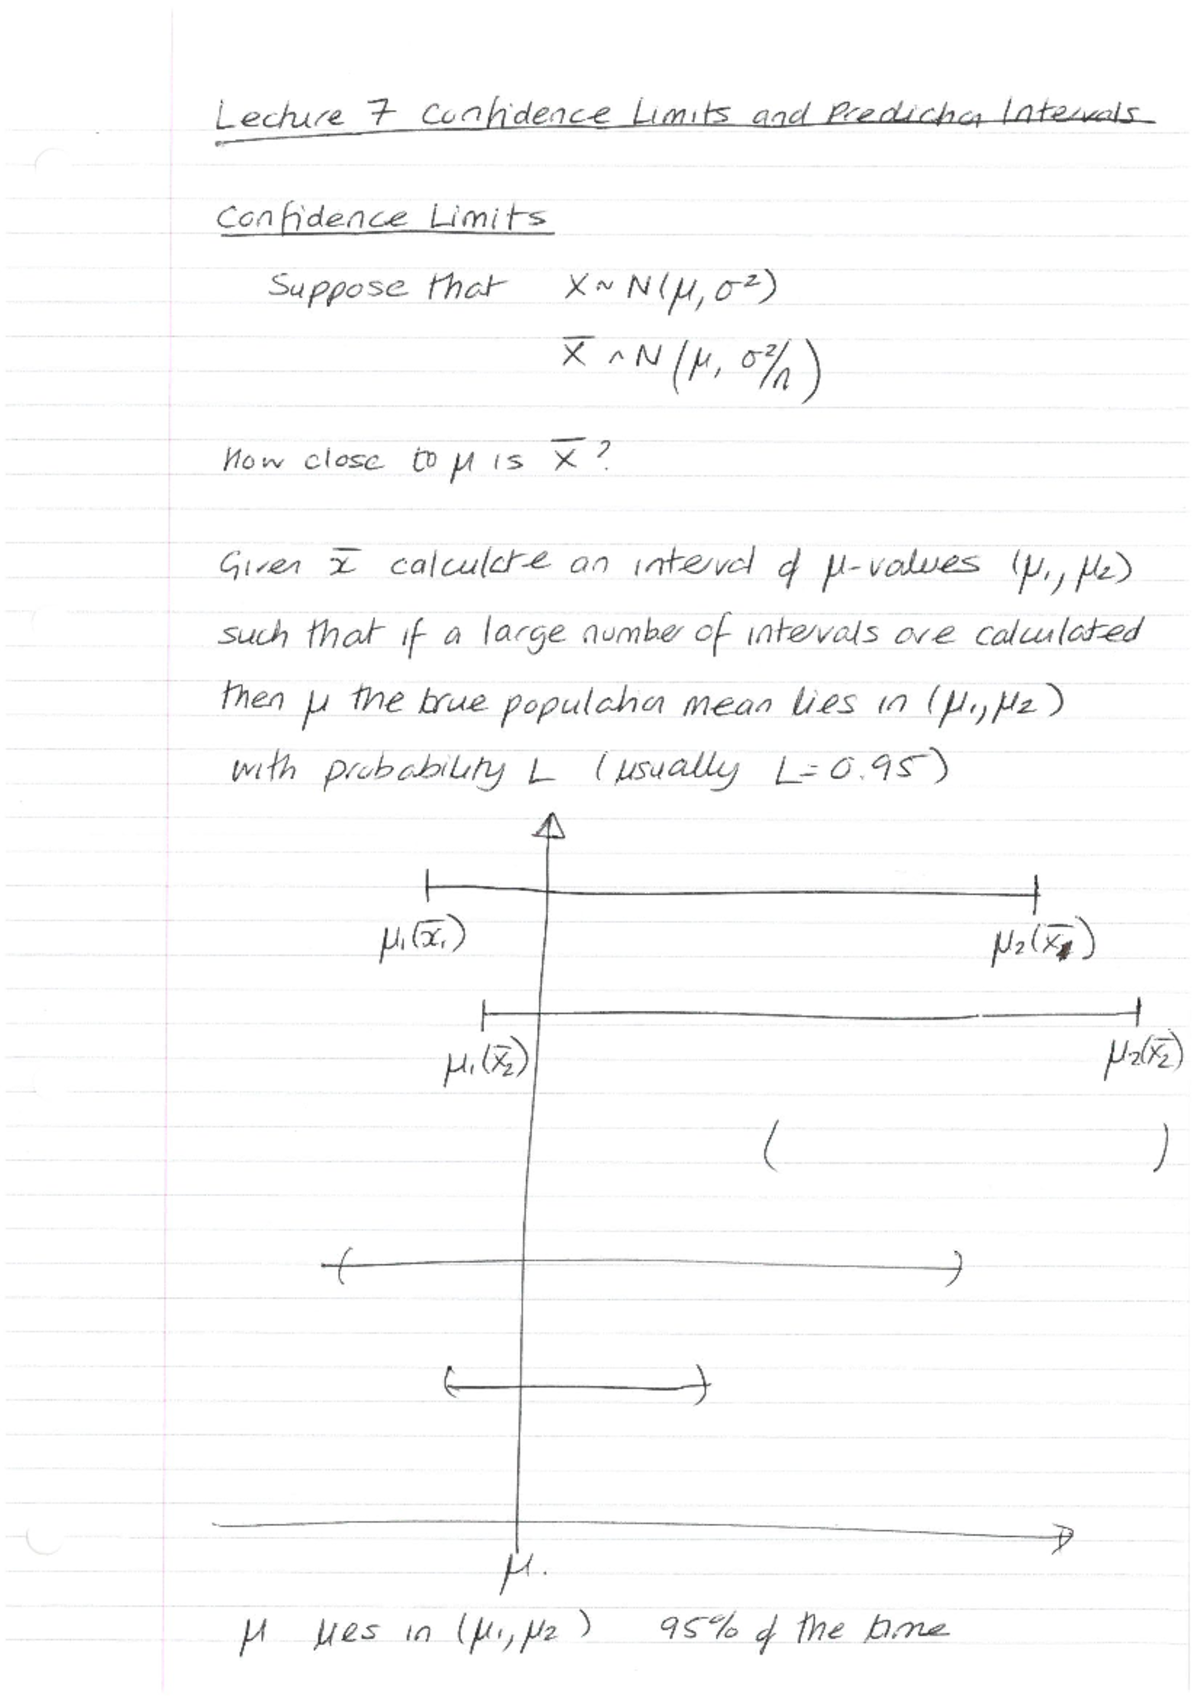 Lecture 7 Confidence Limits and Prediction Intervals
Confidence Limits
Suppose that X ~ N(μ, σ²)
X̅ ~ N(μ, σ²/n)
How close to μ is X̅?
Given x̅ calculate an interval of μ-values (μ₁, μ₂)
such that if a large number of intervals are calculated
then μ the true population mean lies in (μ₁, μ₂)
with probability L (usually L = 0.95)
μ₁(x̅₁) μ₂(x̅₁)
μ₁(x̅₂) μ₂(x̅₂)
( )
( )
( )
μ.
μ lies in (μ₁, μ₂) 95% of the time